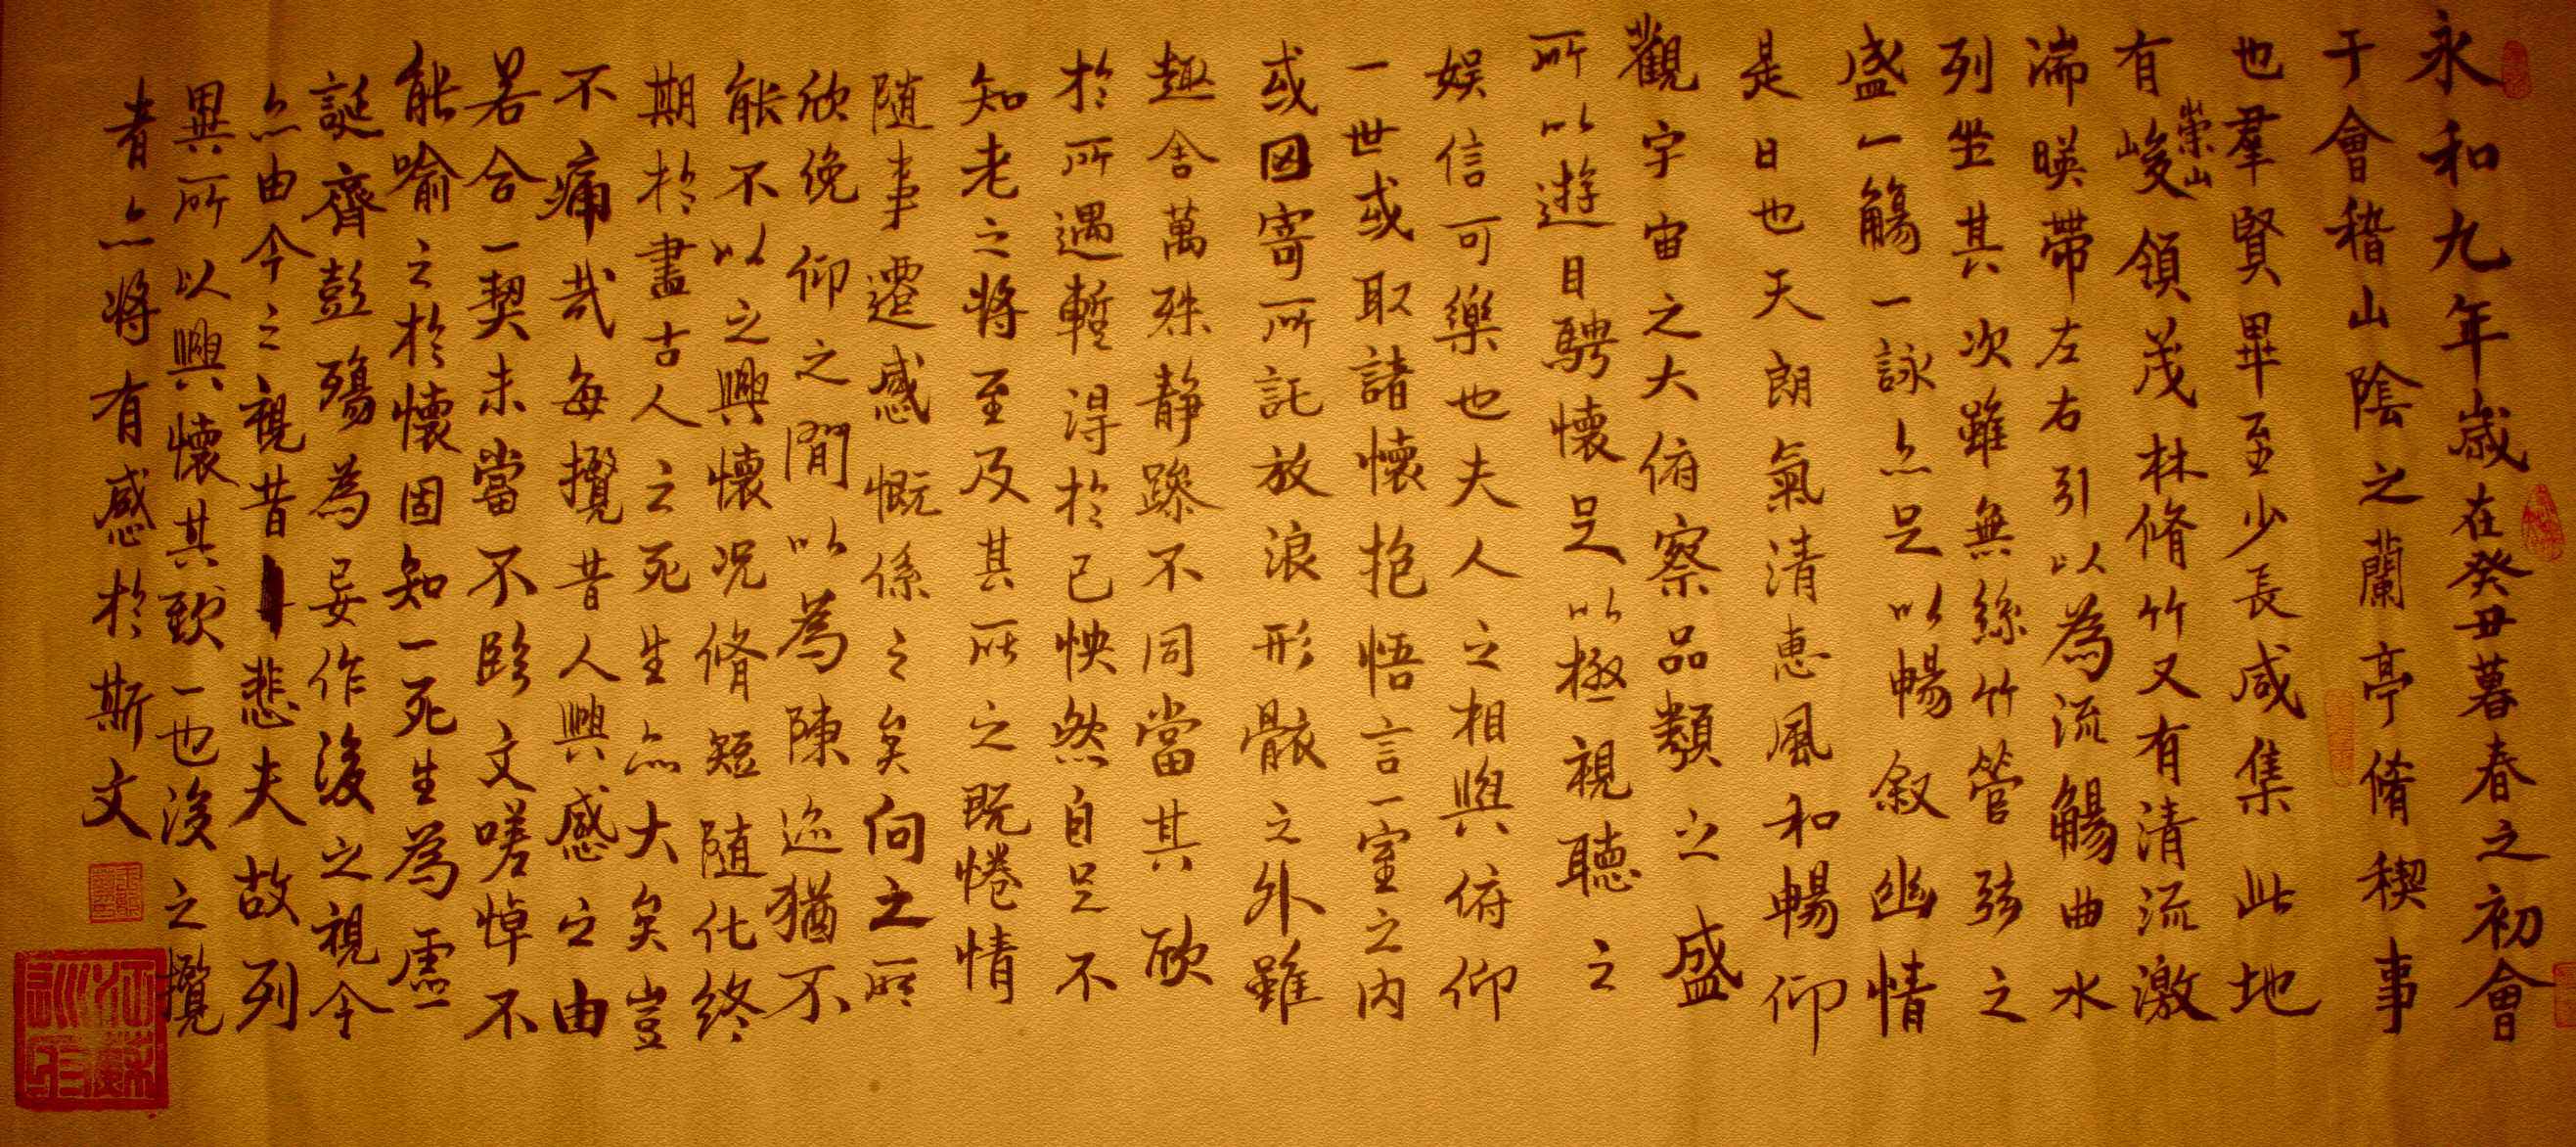 永和九年歲在癸丑暮春之初會
于會稽山陰之蘭亭脩稧事
也羣賢畢至少長咸集此地
有崇山峻領茂林脩竹又有清流激
湍暎帶左右引以為流觴曲水
列坐其次雖無絲竹管弦之
盛一觴一詠亦足以暢叙幽情
是日也天朗氣清惠風和暢仰
觀宇宙之大俯察品類之盛
所以遊目騁懷足以極視聽之
娛信可樂也夫人之相與俯仰
一世或取諸懷抱悟言一室之内
或因寄所託放浪形骸之外雖
趣舍萬殊静躁不同當其欣
於所遇蹔得於己怏然自足不
知老之將至及其所之既惓情
随事遷感慨係之矣向之所
欣俛仰之閒以為陳迹猶不
能不以之興懷况脩短随化終
期於盡古人云死生亦大矣豈
不痛哉每攬昔人興感之由
若合一契未嘗不臨文嗟悼不
能喻之於懷固知一死生為虛
誕齊彭殤為妄作後之視今
亦由今之視昔悲夫故列
異所以興懷其致一也後之攬
者亦將有感於斯文